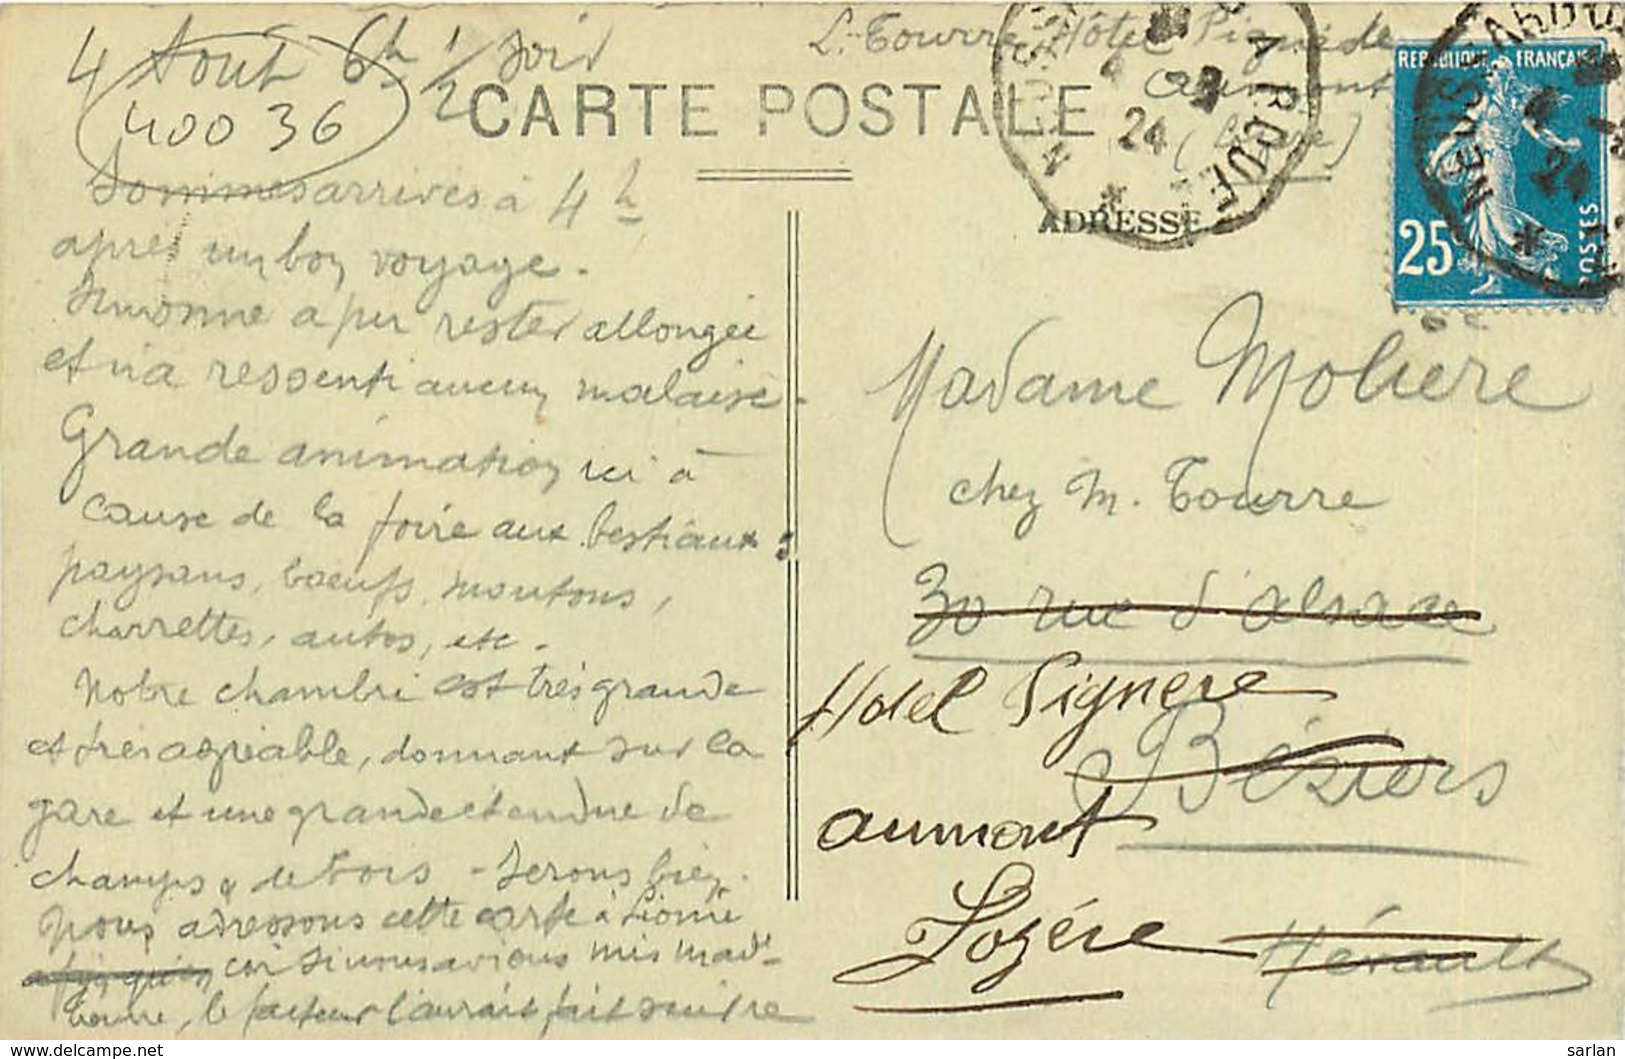 4 Août 6h 1/2 soir
40036
L. Tourre Hôtel Pignède
Aumont
(Lozère)
CARTE POSTALE
ADRESSE
REPUBLIQUE FRANÇAISE
25
POSTES
24
24
Sommes arrivés à 4h
après un bon voyage.
Simonne a pu rester allongée
et n'a ressenti aucun malaise.
Grande animation ici à
cause de la foire aux bestiaux :
paysans, boeufs, moutons,
charrettes, autos, etc.
Notre chambre est très grande
et très agréable, donnant sur la
gare et une grande étendue de
champs & de bois - Serons bien.
Nous adressons cette carte à Léonie
car si nous avions mis Mad.
Tourre, le facteur l'aurait fait suivre
Madame Molière
chez M. Tourre
30 rue d'Alsace
Hotel Pignere
Béziers
aumont
Lozére
Hérault
delcampe.net
sarlan